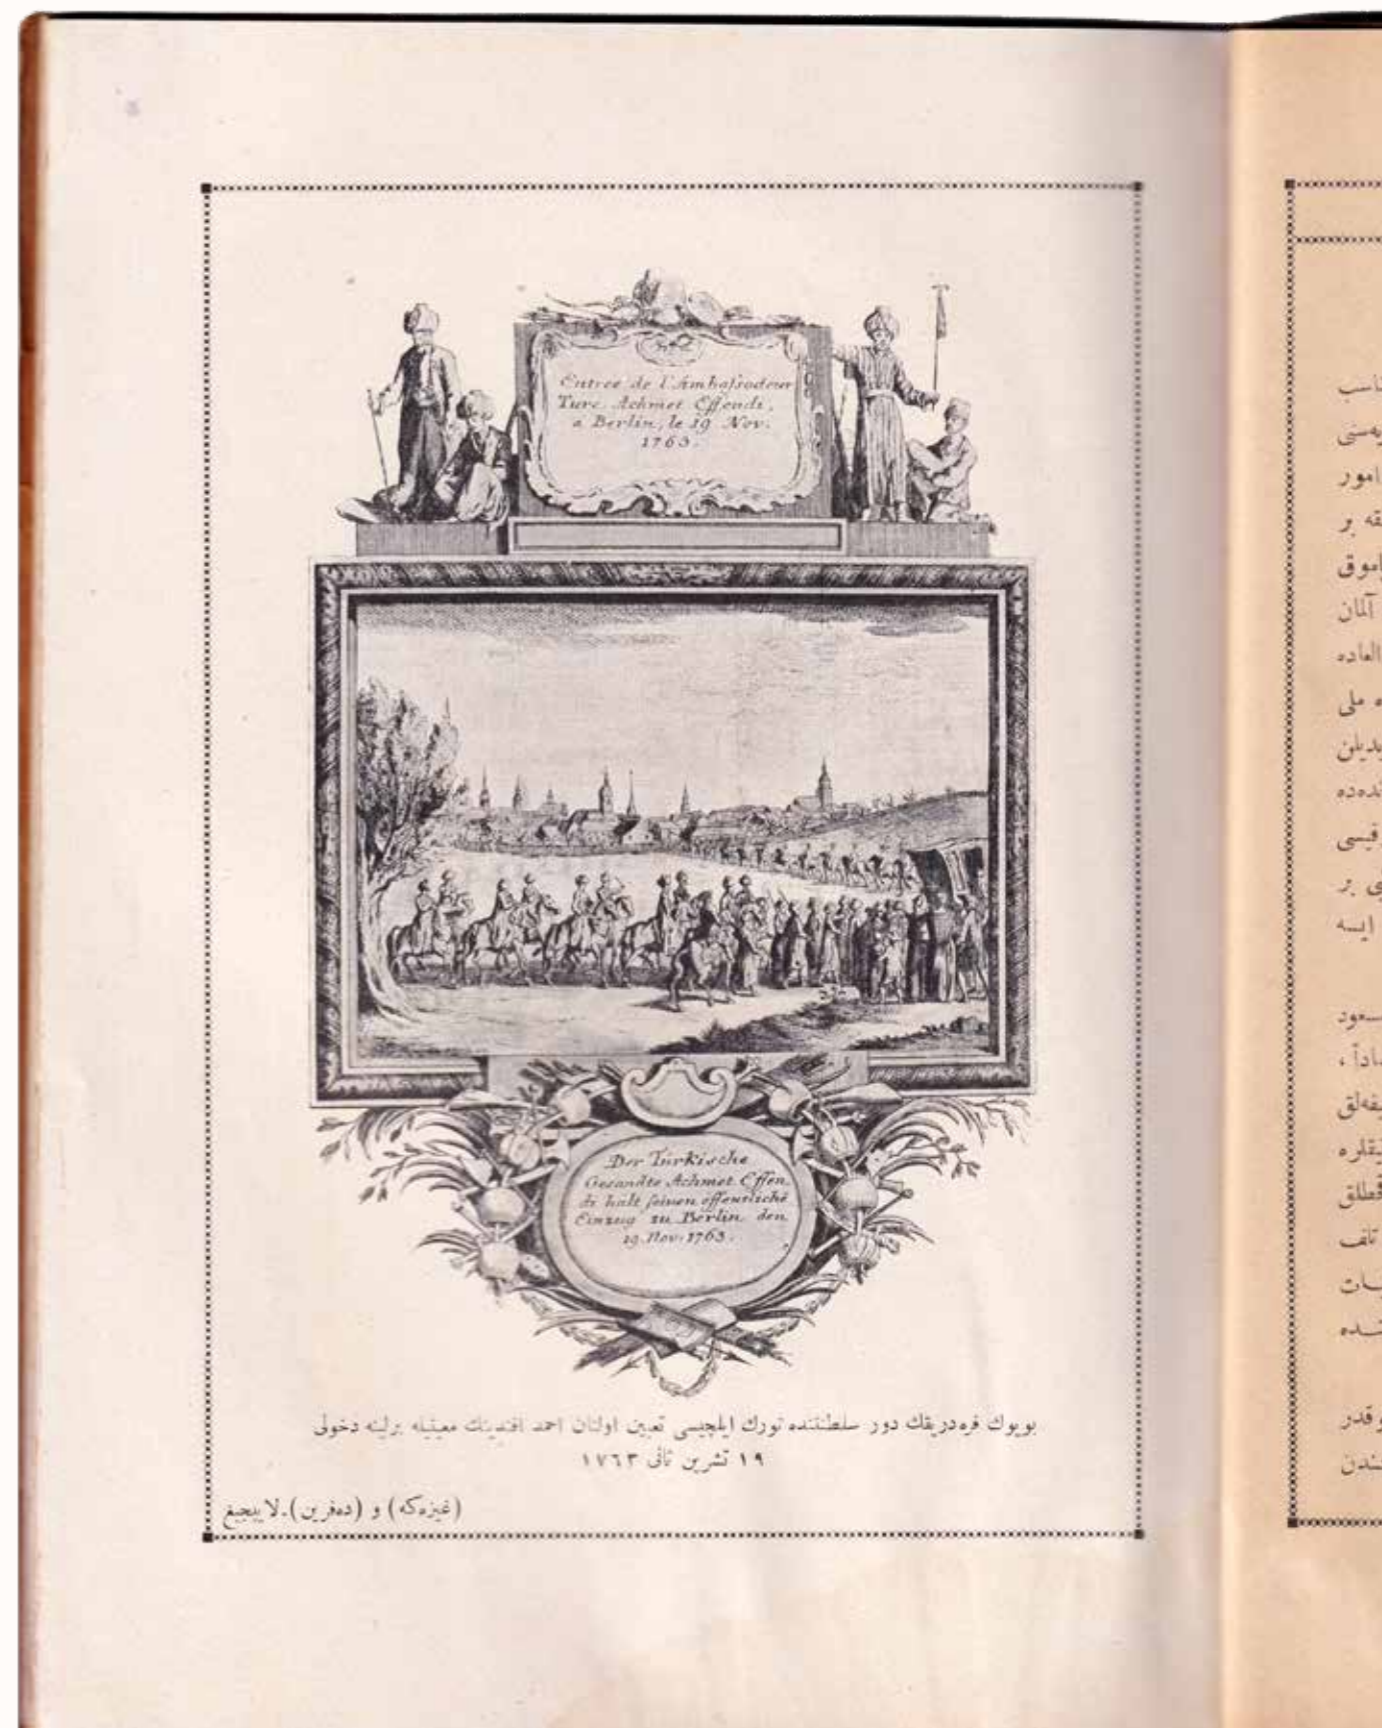 Entree de l'Ambassadeur
Turc Achmet Effendi,
a Berlin, le 19 Nov.
1763.
Der Türkische
Gesandte Achmet Effen-
di hält seinen offentliche
Einzug zu Berlin den
19. Nov. 1763.
بویوك فره‌دریقك دور سلطنتنده تورك ایلچیسی تعیین اولنان احمد افندینك معیتیله برلینه دخولی
١٩ تشرین ثانی ١٧٦٣
(غیزه‌كه) و (ده‌فرین).لایپجیغ
یه‌سنی
امور
قه بر
آلمان
العاده
ه ملی
قیسی
ی بر
ایسه
تلف
وقدر